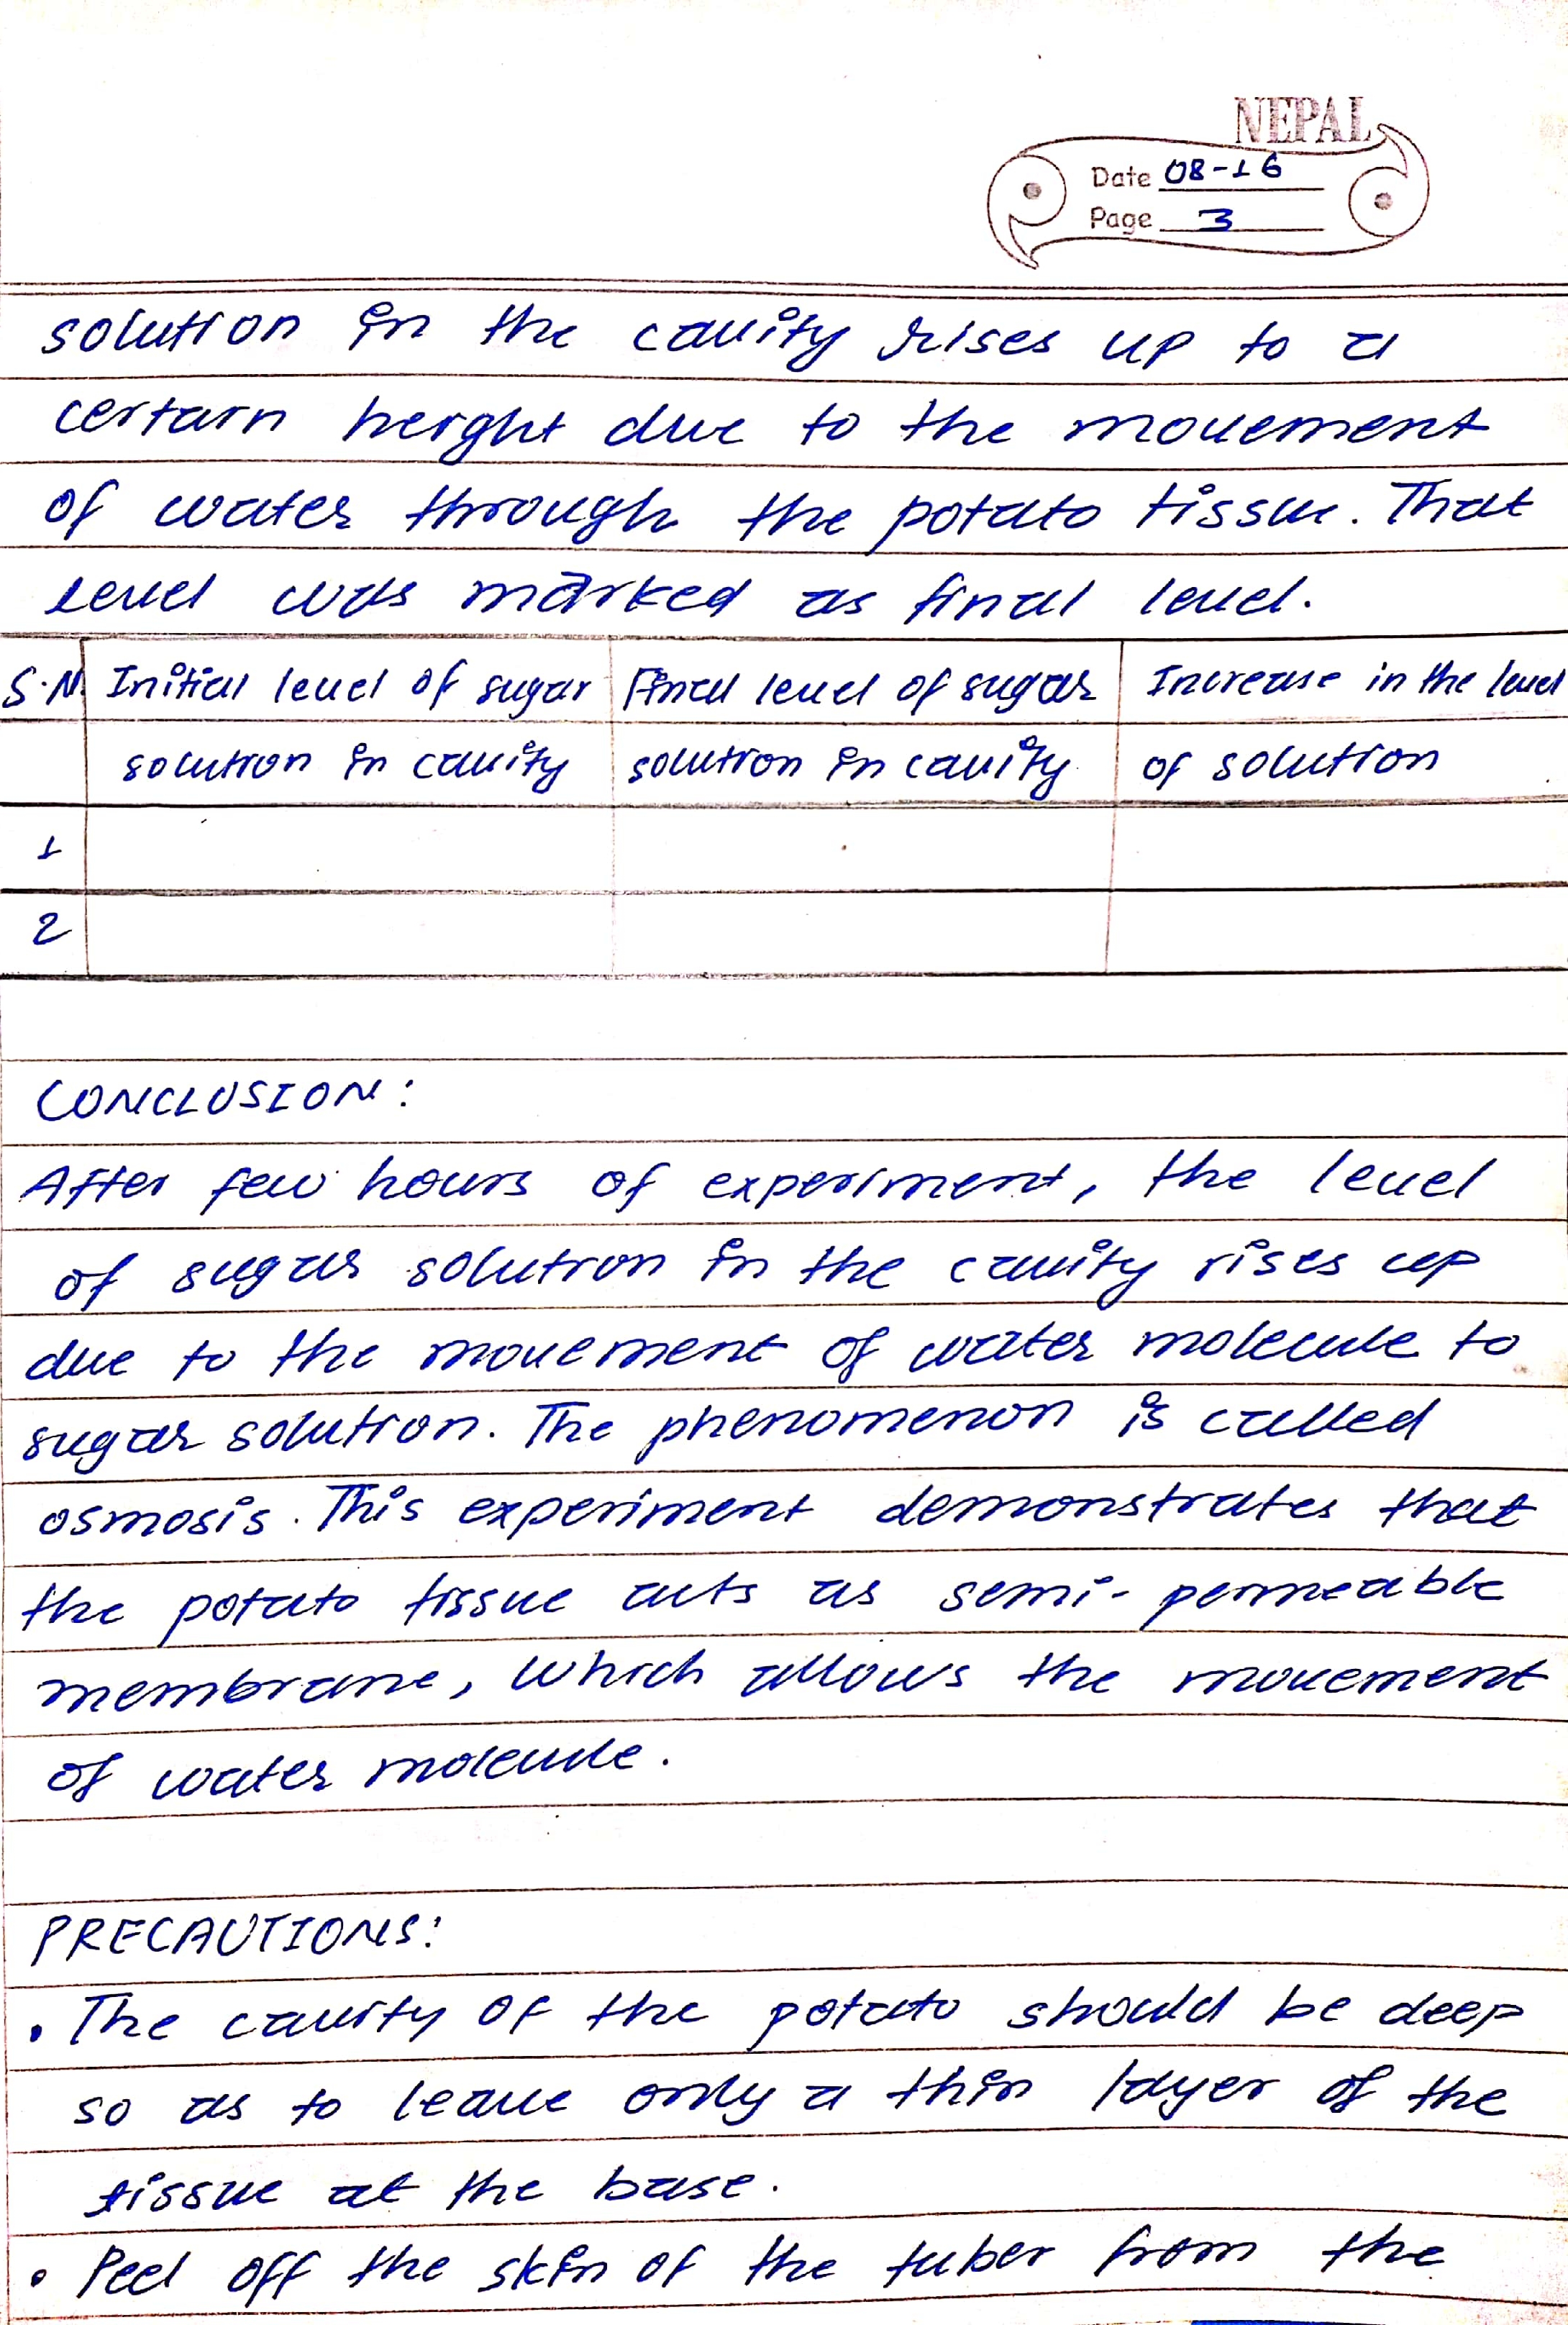 NEPAL
Date 08-16
Page 3
solution in the cavity rises up to a
certain height due to the movement
of water through the potato tissue. That
level was marked as final level.
S.N. Initial level of sugar solution in cavity Final level of sugar solution in cavity. Increase in the level of solution
1
2
CONCLUSION:
After few hours of experiment, the level
of sugar solution in the cavity rises up
due to the movement of water molecule to
sugar solution. The phenomenon is called
osmosis. This experiment demonstrates that
the potato tissue acts as semi-permeable
membrane, which allows the movement
of water molecule.
PRECAUTIONS:
• The cavity of the potato should be deep
so as to leave only a thin layer of the
tissue at the base.
• Peel off the skin of the tuber from the